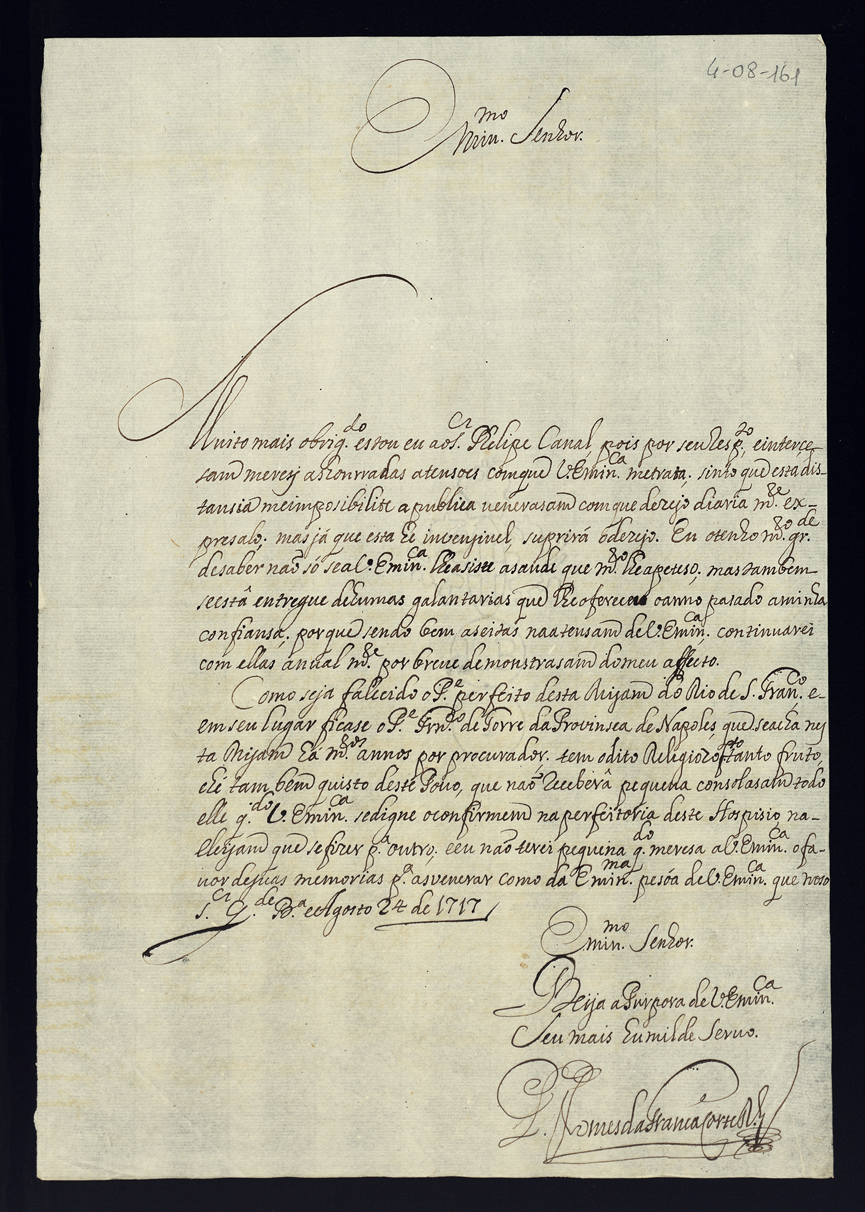 4-08-161
Emin.mo Senhor.
Muito mais obrig.do estou eu ao S.r Phelipe Canal, pois por seu Resp.to, e interce-
sam merey as honrradas atensoes com que V. Emin.ca me trata. sinto que esta dis-
tansia me imposibilite a publica venerasam com que dezejo diaria m.te ex-
presalo; mas já que esta he invensivel, suprirá o dezejo. Eu o tenho m.to gr.de
de saber não só se a V. Emin.ca lhe asiste a saude que m.to lhe apeteso, mas tambem
se está entregue de humas galantarias que lhe ofereceu o anno pasado a minha
confiansa; porque sendo bem aseitas na atensam de V. Emin.ca continuarei
com ellas anual m.te por breve demonstrasam do meu affecto.
Como seja falecido o P.e perfeito desta Misam do Rio de S. Fran.co e
em seu lugar ficase o P.e de Torre da Provinsea de Napoles que se acha nes
ta Misam há m.tos annos por procurador. tem o dito Religiozo f.to tanto fruto,
e he tam bem quisto deste Povo, que não Receberá pequena consolasam todo
elle q.do V. Emin.ca se digne o confirmem na perfeitoria deste Hospisio, na-
eleisam que se fizer p.a outro; e eu não terei pequena q.do meresa a V. Emin.ca o fa-
vor de suas memorias p.a as venerar como da Emin.ma pesôa de V. Emin.ca que noso
S.r G.de B.a e Agosto 24 de 1717
Emin.mo Senhor.
Beija a Purpora de V. Emin.ca
Seu mais humilde Servo.
da Franca Corte R.l